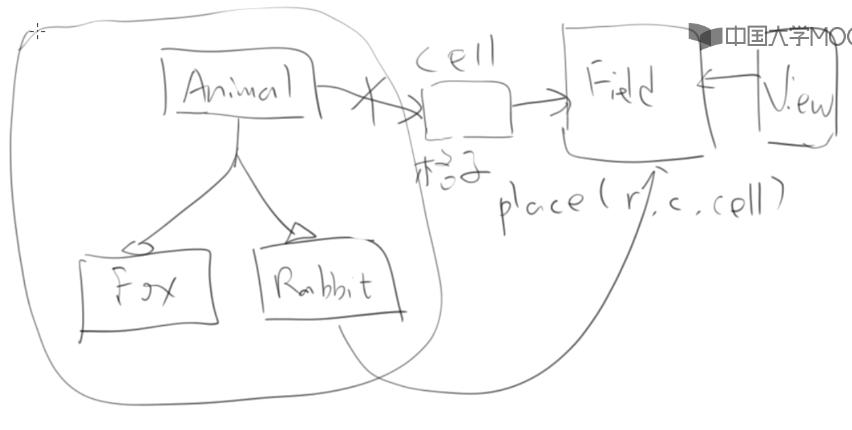 cell
中国大学MOO
Animal
Field
View
格子
place(r,c,cell)
Fox
Rabbit